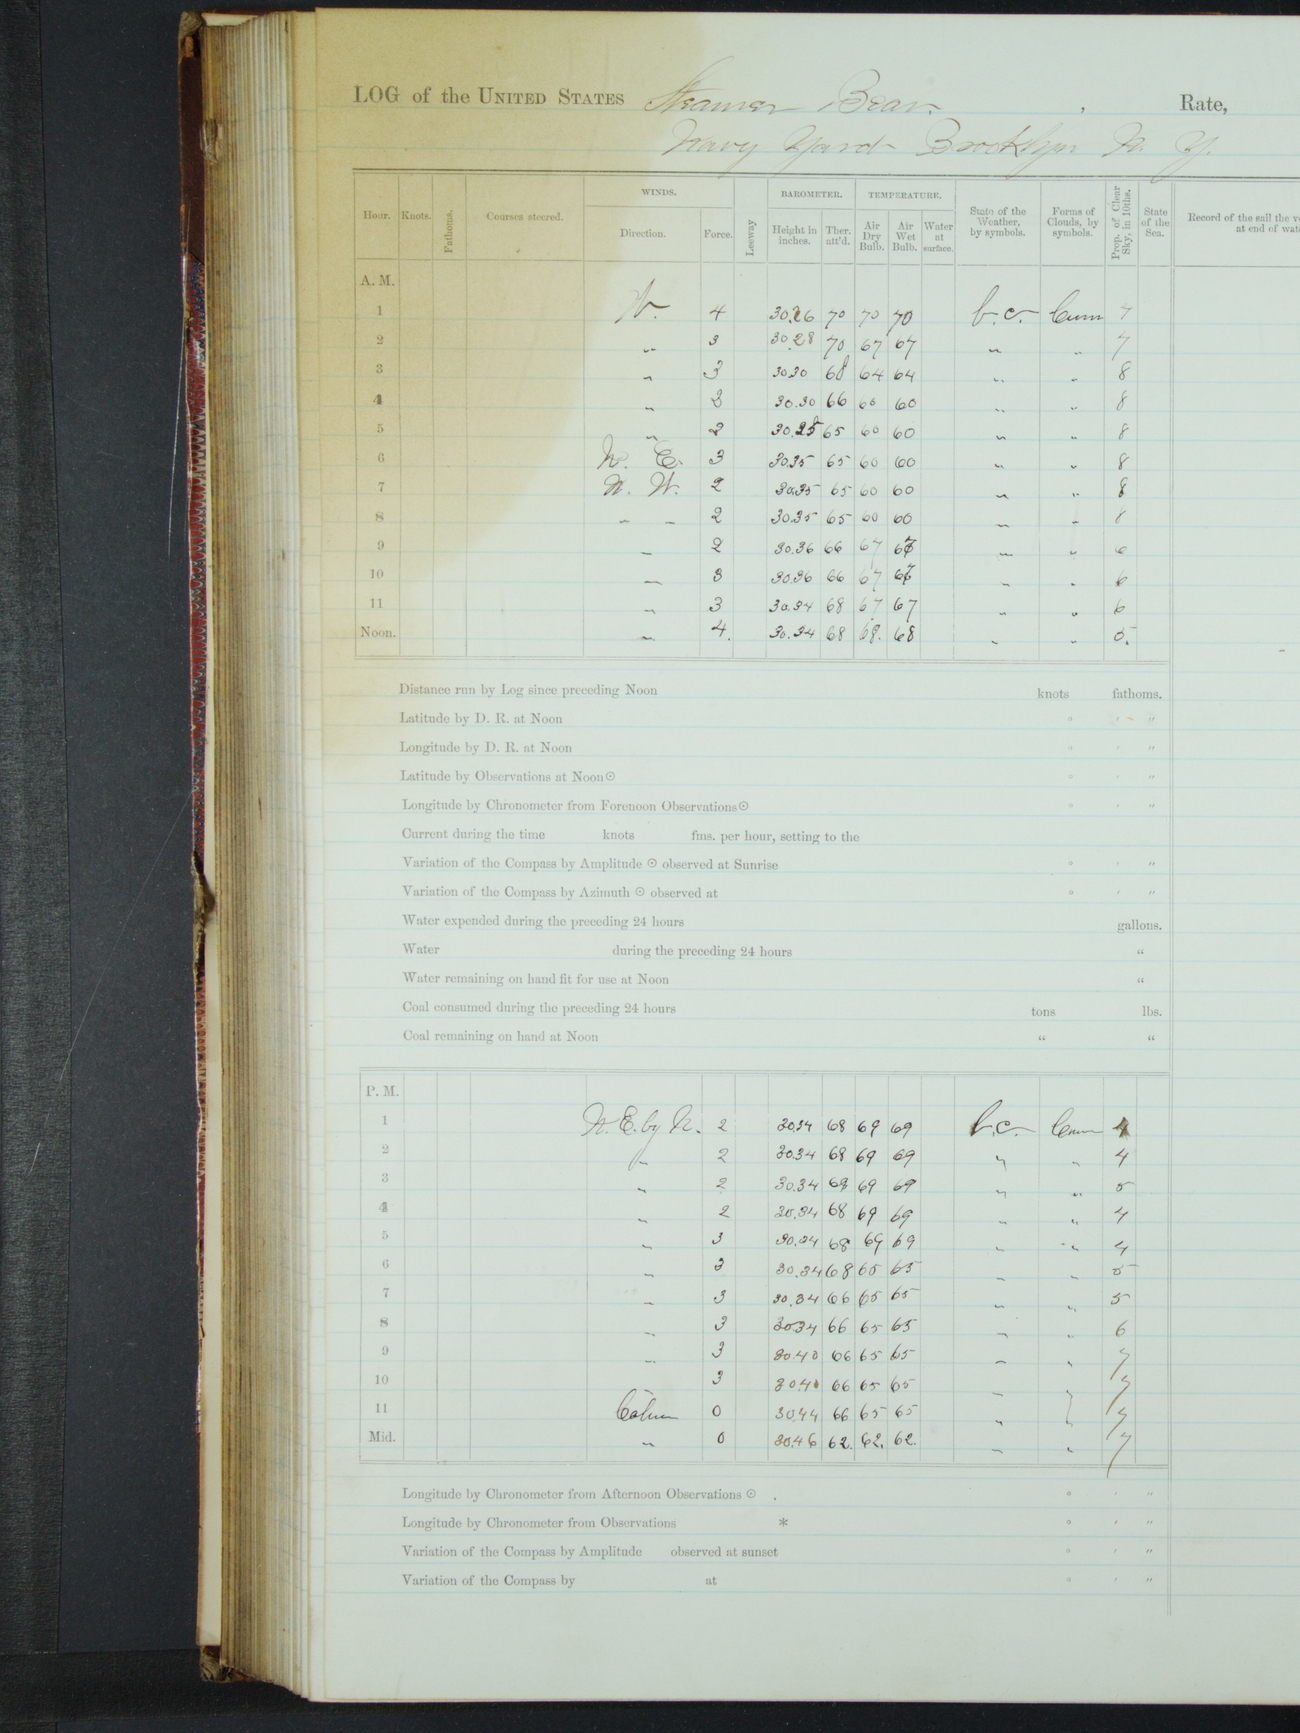 LOG of the UNITED STATES Steamer Bear, Rate,
Navy Yard Brooklyn N. Y.
WINDS. BAROMETER. TEMPERATURE.
Hour. Knots. Fathoms. Courses steered. Direction. Force. Leeway Height in inches. Ther. att'd. Air Dry Bulb. Air Wet Bulb. Water at surface. State of the Weather, by symbols. Forms of Clouds, by symbols. Prop. of Clear Sky, in 10ths. State of the Sea. Record of the sail the
at end of
A. M.
1 W. 4 30.26 70 70 70 b.c. Cum 7
2 " 3 30.28 70 67 67 " " 7
3 " 3 30.30 68 64 64 " " 8
4 " 3 30.30 66 60 60 " " 8
5 " 2 65 60 60 " " 8
6 N. E. 3 30.35 65 60 60 " " 8
7 N. W. 2 30.35 65 60 60 " " 8
8 " " 2 30.35 65 60 60 " " 8
9 " 2 30.36 66 67 67 " " 6
10 " 3 30.36 66 67 67 " " 6
11 " 3 30.34 68 67 67 " " 6
Noon. " 4. 30.34 68 68. 68 " " 5.
Distance run by Log since preceding Noon knots fathoms.
Latitude by D. R. at Noon ° ' "
Longitude by D. R. at Noon ° ' "
Latitude by Observations at Noon ☉ ° ' "
Longitude by Chronometer from Forenoon Observations ☉ ° ' "
Current during the time knots fms. per hour, setting to the
Variation of the Compass by Amplitude ☉ observed at Sunrise ° ' "
Variation of the Compass by Azimuth ☉ observed at ° ' "
Water expended during the preceding 24 hours gallons.
Water during the preceding 24 hours "
Water remaining on hand fit for use at Noon "
Coal consumed during the preceding 24 hours tons lbs.
Coal remaining on hand at Noon " "
P. M.
1 N. E. by N. 2 30.34 68 69 69 b.c. Cum 4
2 " 2 30.34 68 69 69 " " 4
3 " 2 30.34 68 69 69 " " 5
4 " 2 30.34 68 69 69 " " 4
5 " 3 30.34 68 69 69 " " 4
6 " 3 30.34 68 65 65 " " 5
7 " 3 30.34 66 65 65 " " 5
8 " 3 30.34 66 65 65 " " 6
9 " 3 30.40 66 65 65 " " 7
10 " 3 30.40 66 65 65 " " 7
11 Calm 0 30.44 66 65 65 " " 7
Mid. " 0 30.46 62. 62. 62. " " 7
Longitude by Chronometer from Afternoon Observations ☉ ° ' "
Longitude by Chronometer from Observations * ° ' "
Variation of the Compass by Amplitude observed at sunset ° ' "
Variation of the Compass by at ° ' "